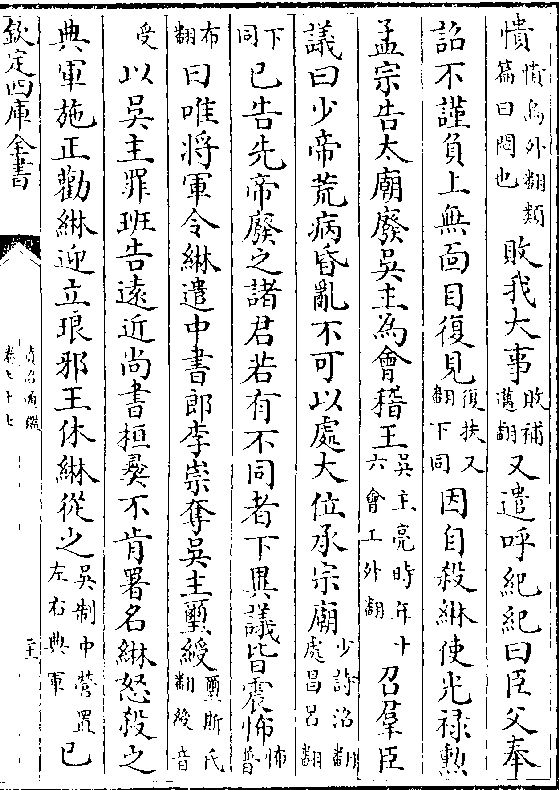 憒憒烏外翻類篇曰悶也敗我大事敗補邁翻又遣呼紀紀曰臣父奉
詔不謹負上無面目復見復扶又翻下同因自殺綝使光祿勲
孟宗告太廟廢吳主為會稽王吳主亮時年十六會工外翻召羣臣
議曰少帝荒病昏亂不可以處大位承宗廟少詩沼翻處昌呂翻
下同已告先帝廢之諸君若有不同者下異議皆震怖怖普
布翻曰唯將軍令綝遣中書郎李崇奪吳主璽綬璽斯氏翻綬音
受以吳主罪班告遠近尚書桓彞不肯署名綝怒殺之
典軍施正勸綝迎立琅邪王休綝從之吳制中營置左右典軍已
欽定四庫全書
資治通鑑
卷七十七